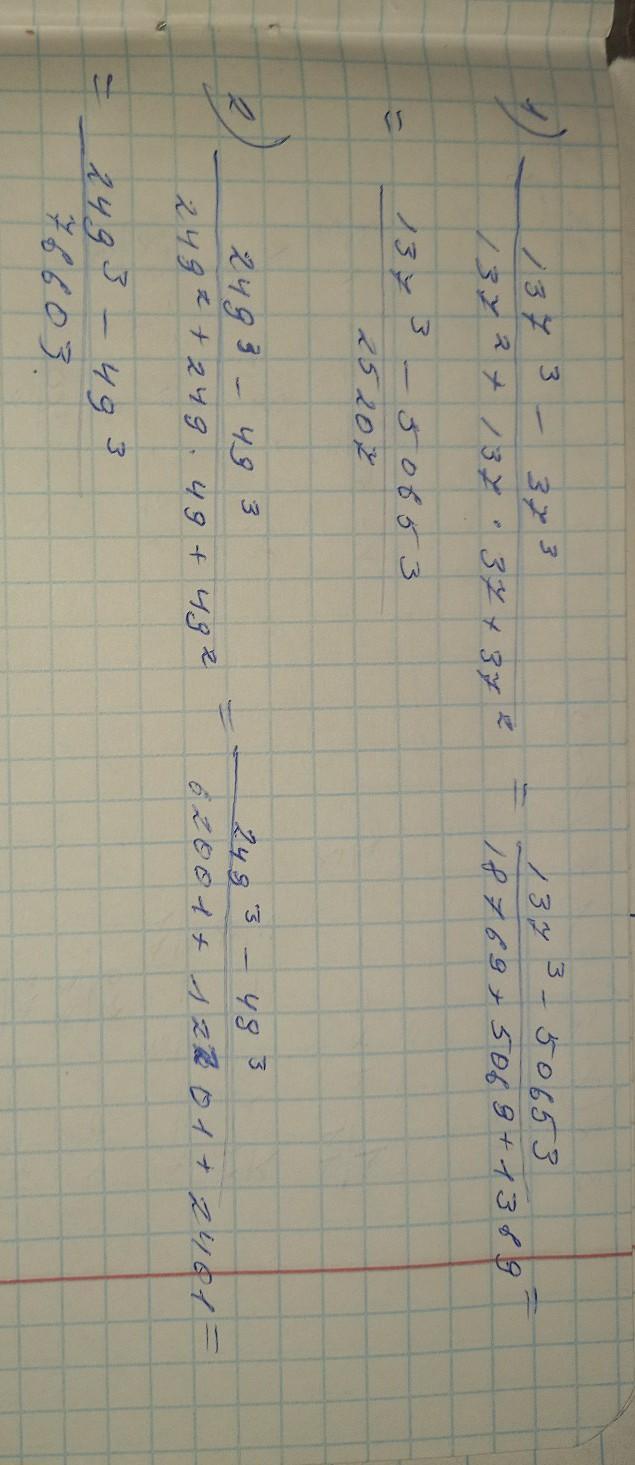 1) (137³ − 37³) / (137² + 137 · 37 + 37²) = (137³ − 50653) / (18769 + 5069 + 1369) =
= (137³ − 50653) / 25207
2) (249³ − 49³) / (249² + 249 · 49 + 49²) = (249³ − 49³) / (62001 + 12201 + 2401) =
= (249³ − 49³) / 76603